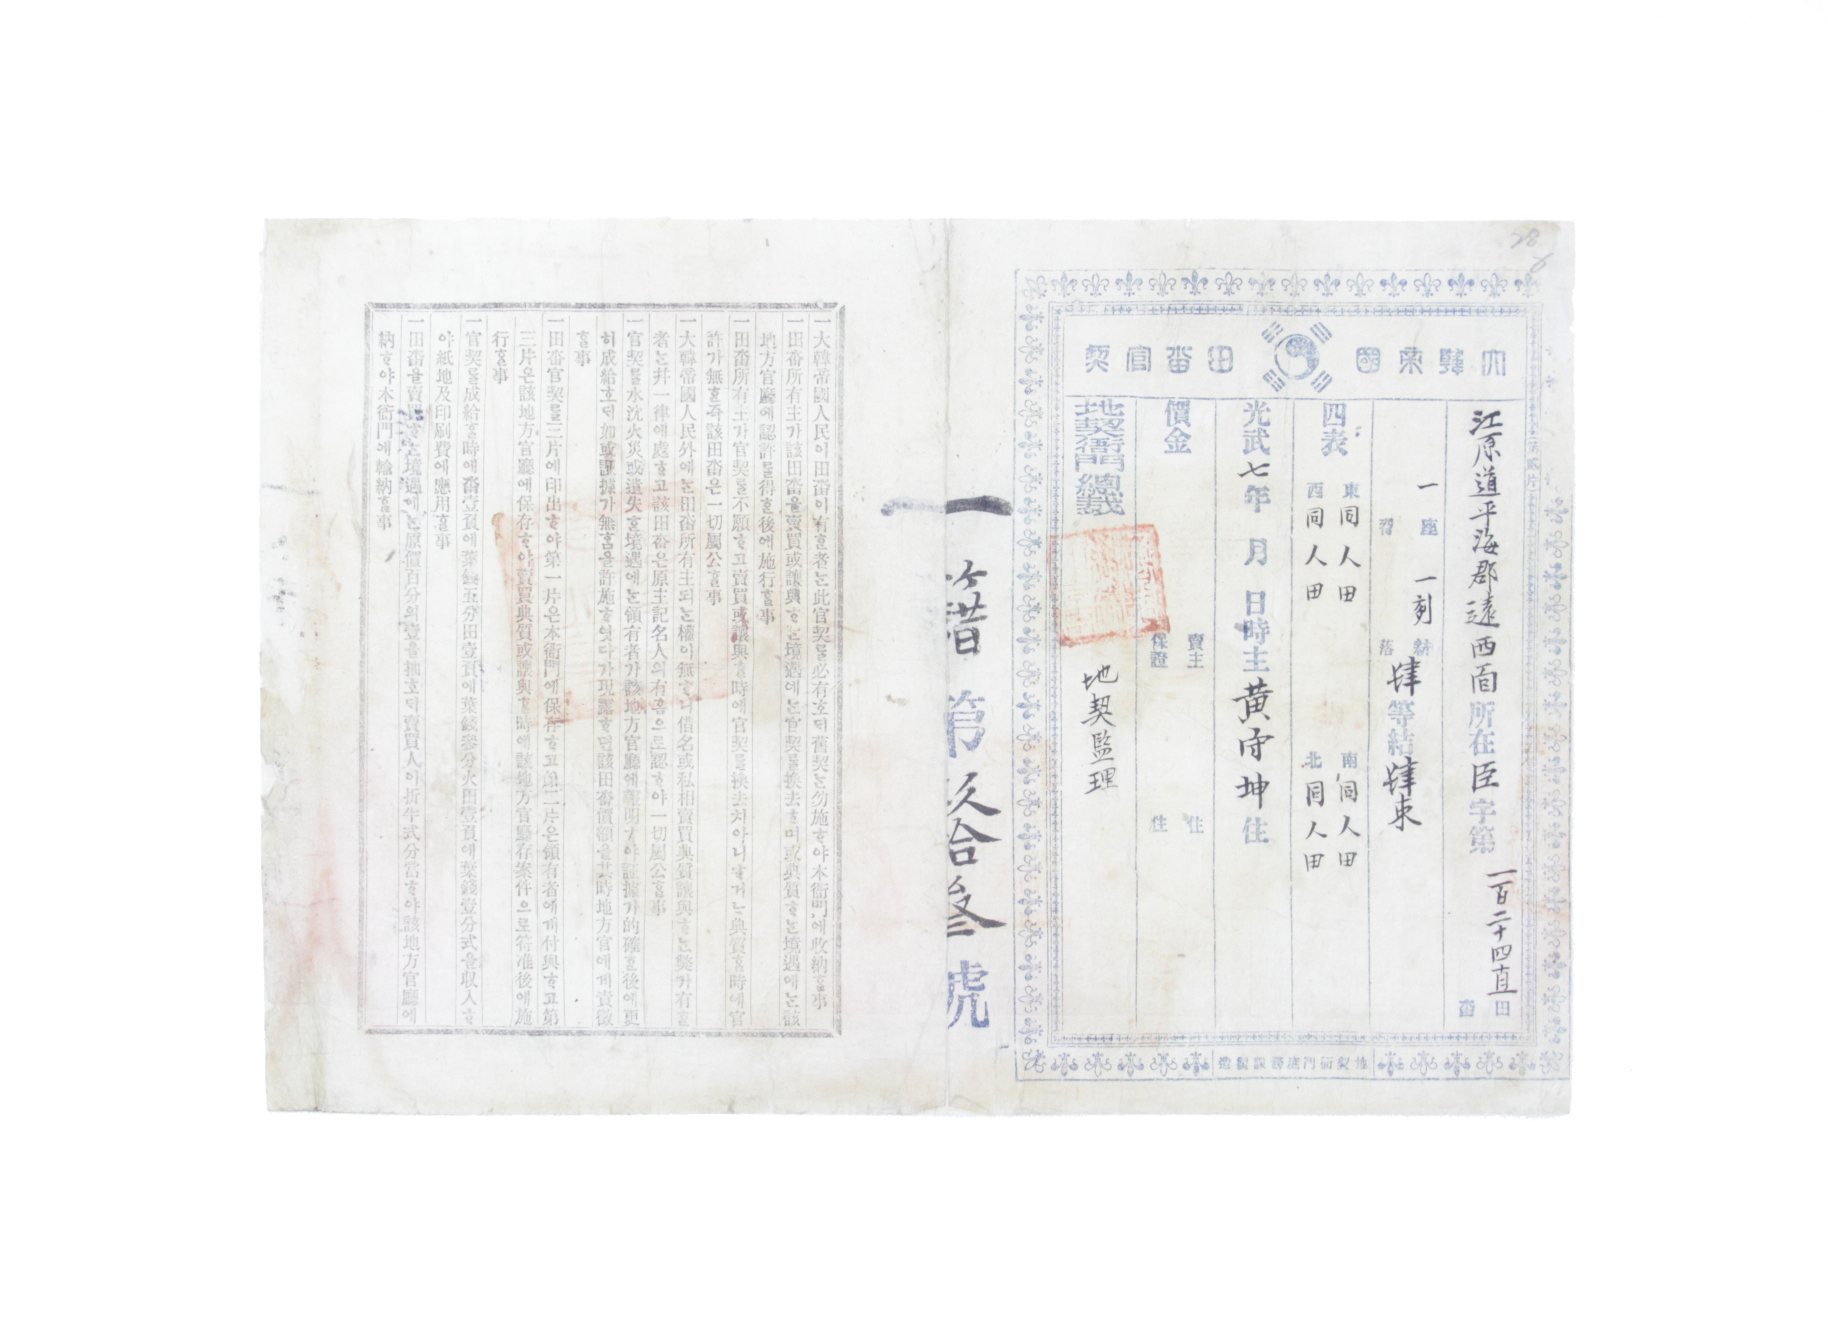 大韓帝國 田畓官契
江原道平海郡遠西面所在臣字第一百二十四直 田畓
一座 一刻 耕 落 肆等結肆束
四表 東同人田 西同人田 南同人田 北同人田
光武七年 月 日時主黃守坤 住
價金 賣主 住 保證 住
地契衙門總裁 地契監理
第玖拾參號
一大韓帝國人民이田畓이有ᄒᆞᆫ者ᄂᆞᆫ此官契ᄅᆞᆯ必有호ᄃᆡ舊契ᄂᆞᆫ勿施ᄒᆞ야本衙門에收納ᄒᆞᆯ事
一田畓所有主가該田畓을賣買或讓與ᄒᆞᄂᆞᆫ境遇에ᄂᆞᆫ官契ᄅᆞᆯ換去ᄒᆞ며或典質ᄒᆞᄂᆞᆫ境遇에ᄂᆞᆫ該
地方官廳에認許ᄅᆞᆯ得ᄒᆞᆫ後에施行ᄒᆞᆯ事
一田畓所有主가官契ᄅᆞᆯ不願ᄒᆞ고賣買或讓與ᄒᆞᆯ時에官契ᄅᆞᆯ換去치아니ᄒᆞ거ᄂᆞ典質ᄒᆞᆯ時에官
許가無ᄒᆞᆫ즉該田畓은一切屬公ᄒᆞᆯ事
一大韓帝國人民外에ᄂᆞᆫ田畓所有主되ᄂᆞᆫ權이無ᄒᆞ니借名或私相賣買典質讓與ᄒᆞᄂᆞᆫ弊가有ᄒᆞᆫ
者ᄂᆞᆫ幷一律에處ᄒᆞ고該田畓은原主記名人의有ᄒᆞᆷ으로認ᄒᆞ야一切屬公ᄒᆞᆯ事
一官契ᄅᆞᆯ水沈火災或遺失ᄒᆞᆫ境遇에ᄂᆞᆫ領有者가該地方官廳에報明ᄒᆞ야証據가的確ᄒᆞᆫ後에更
히成給호ᄃᆡ如或証據가無ᄒᆞᆷ을許施ᄒᆞ엿다가現露ᄒᆞ면該田畓價額을其時地方官에게責徵
ᄒᆞᆯ事
一田畓官契ᄅᆞᆯ三片에印出ᄒᆞ야第一片은本衙門에保存ᄒᆞ고第二片은領有者에게付與ᄒᆞ고第
三片은該地方官廳에保存ᄒᆞ야賣買典質或讓與ᄒᆞᆯ時에該地方官廳存案件으로符准後에施
行ᄒᆞᆯ事
一官契ᄅᆞᆯ成給ᄒᆞᆯ時에畓壹負에葉錢五分田壹負에葉錢參分火田壹負에葉錢壹分式을收入ᄒᆞ
야紙地及印刷費에應用ᄒᆞᆯ事
一田畓을賣買ᄒᆞᄂᆞᆫ境遇에ᄂᆞᆫ原價百分의壹을抽호ᄃᆡ賣買人이折半式分當ᄒᆞ야該地方官廳에
納ᄒᆞ야本衙門에輸納ᄒᆞᆯ事